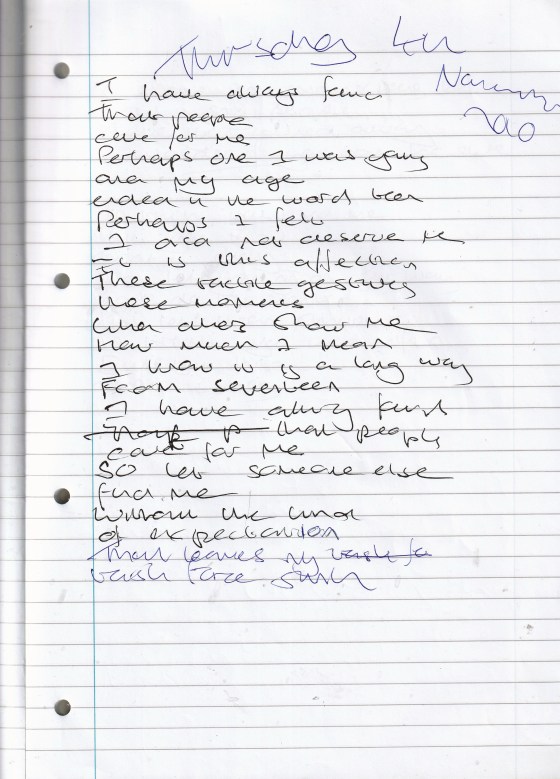 Thursday 4th
I have always found
That people
care for me
Perhaps one I was young
and my age
ended in the word teen
Perhaps I felt
I did not deserve it
It is this affection
These tactile gestures
These moments
when others show me
How much I mean
I know it is a long way
From seventeen
I have always found
that people
care for me
So let someone else
find me
without the kind
of expectation
That leaves my
face